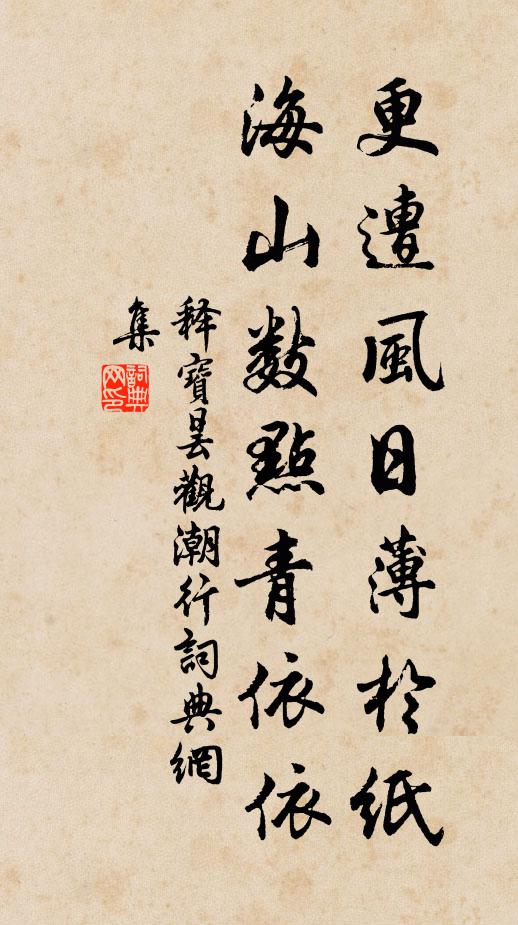 更遭風日薄於紙
海山数點青依依
释寶昙觀潮行詞典網
集
詞典
网印